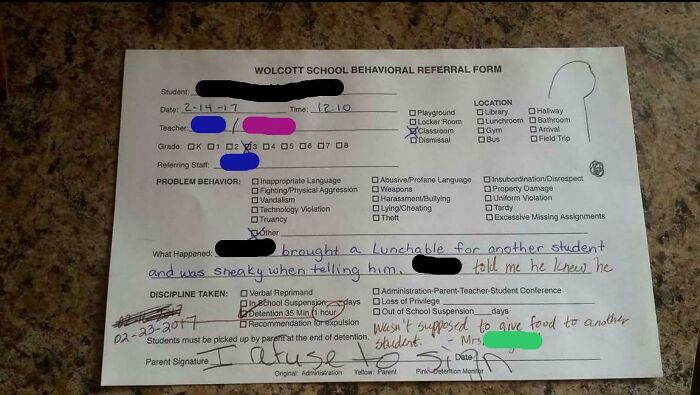 WOLCOTT SCHOOL BEHAVIORAL REFERRAL FORM
Student:
Date: 2-14-17 Time: 12:10
Teacher: /
Grade: K 1 2 3 4 5 6 7 8
Referring Staff:
LOCATION
Playground Library Hallway
Locker Room Lunchroom Bathroom
Classroom Gym Arrival
Dismissal Bus Field Trip
PROBLEM BEHAVIOR: Inappropriate Language Abusive/Profane Language Insubordination/Disrespect
Fighting/Physical Aggression Weapons Property Damage
Vandalism Harassment/Bullying Uniform Violation
Technology Violation Lying/Cheating Tardy
Truancy Theft Excessive Missing Assignments
Other
What Happened: brought a Lunchable for another student
and was sneaky when telling him. told me he knew he
DISCIPLINE TAKEN: Verbal Reprimand Administration-Parent-Teacher-Student Conference
In School Suspension days Loss of Privilege
Detention 35 Min/1 hour Out of School Suspension days
02-23-2017 Recommendation for expulsion wasn't supposed to give food to another
Students must be picked up by parent at the end of detention. student. - Mrs.
Parent Signature I refuse to sign Date
Original: Administration Yellow: Parent Pink-Detention Monitor